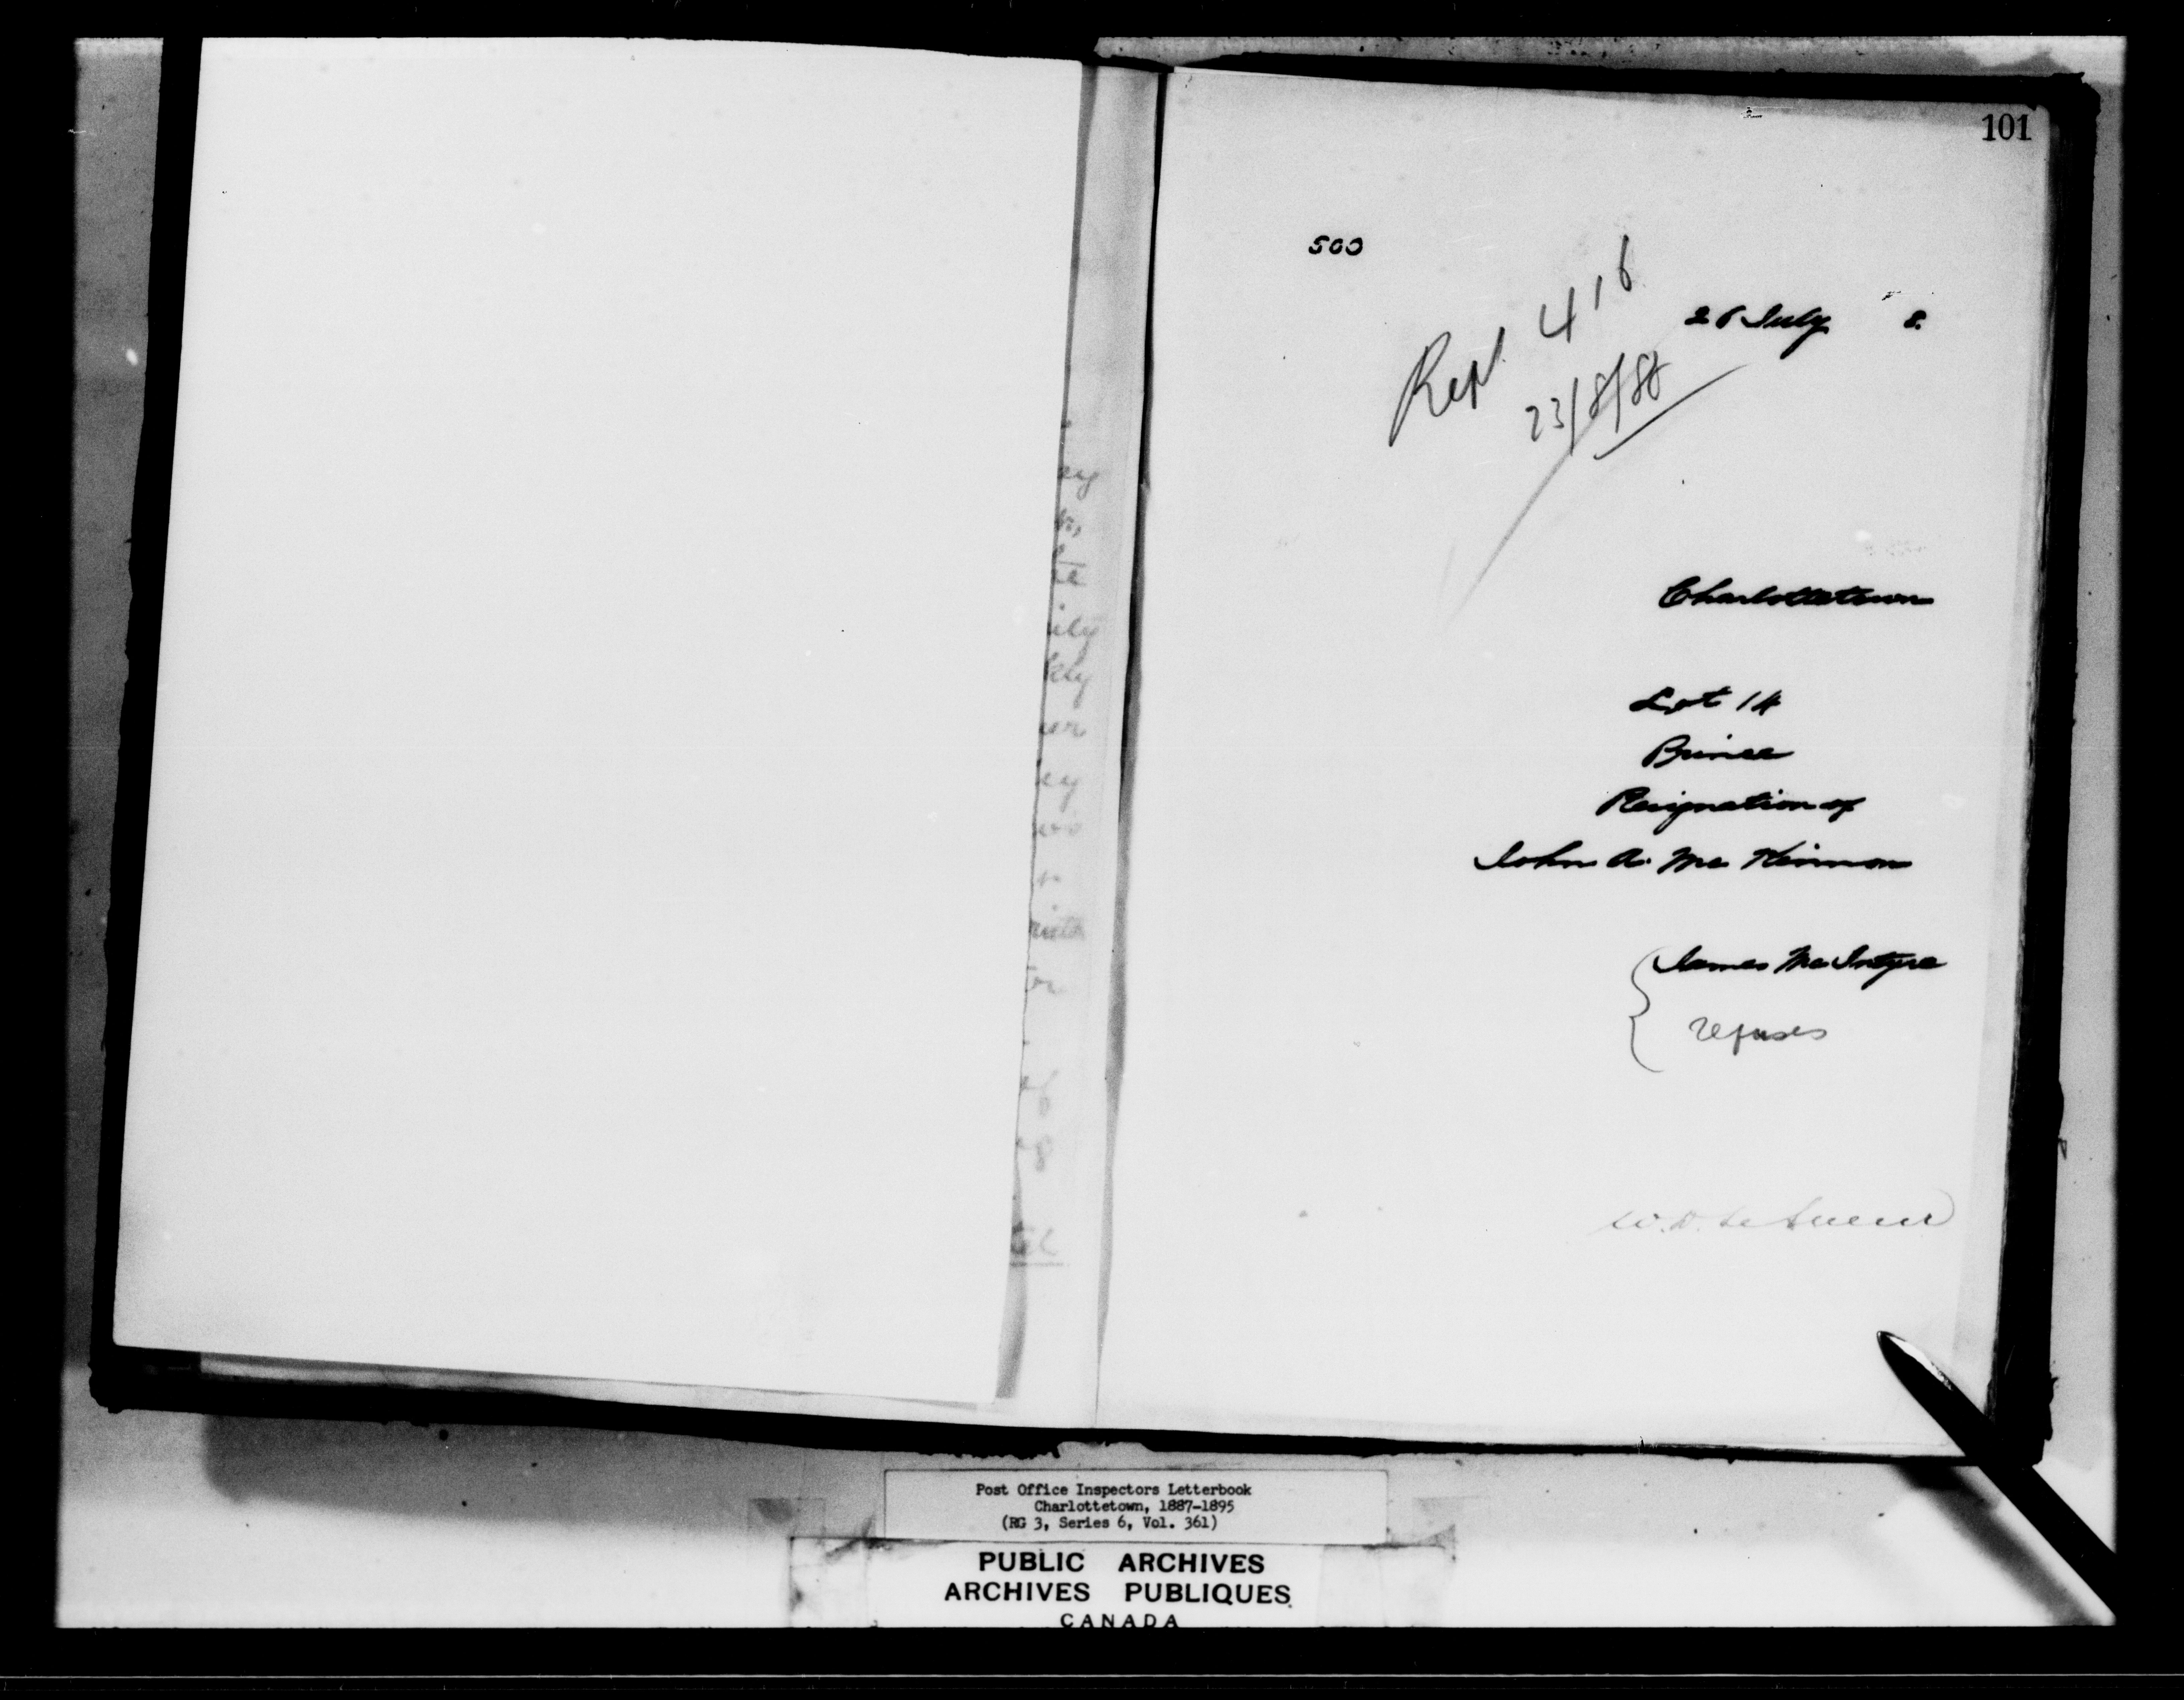 ey
te
ily
kly
er
ey
101
500
Rept 416
23/8/88
26 July 8.
Charlottetown
Lot 14
Prince
Resignation of
John A. McKinnon
James McIntyre
refuses
W. D. LeSueur
Post Office Inspectors Letterbook
Charlottetown, 1887-1895
(RG 3, Series 6, Vol. 361)
PUBLIC ARCHIVES
ARCHIVES PUBLIQUES
CANADA